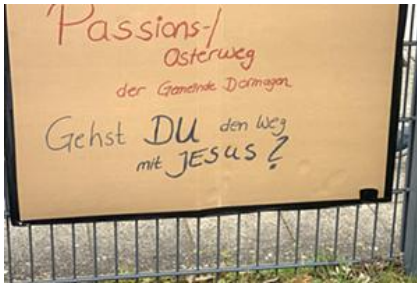 Passions-/
Osterweg
der Gemeinde Dormagen
Gehst DU den Weg
mit JESUS?